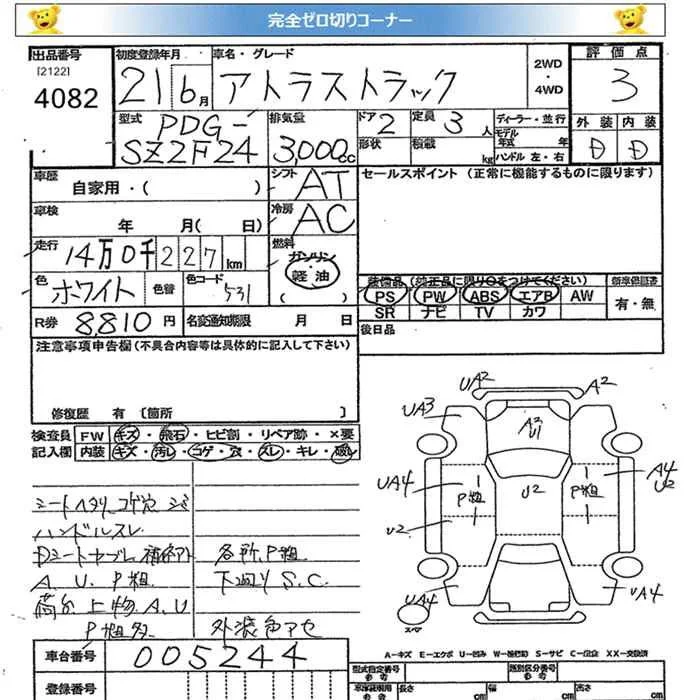 完全ゼロ切りコーナー
出品番号
[2122]
4082
初度登録年月
21 6月
車名・グレード
アトラストラック
2WD
・
4WD
評価点
3
型式
PDG-
SZ2F24
排気量
3,000cc
ドア 2
形状
定員 3 人
積載 kg
ディーラー・並行
モデル
年式 年
ハンドル 左・右
外装 内装
D D
車歴
自家用・( )
シフト AT
セールスポイント (正常に機能するものに限ります)
車検
年 月( 日)
冷房 AC
走行
14万0千227km
燃料
ガソリン
軽油
( )
色
ホワイト
色替
色コード
531
装備品 (純正品に限り○をつけてください)
新車保証書
PS PW ABS エアB AW
有・無
SR ナビ TV カワ
R券 8,810円
名変通知期限 月 日
後日品
注意事項申告欄(不具合内容等は具体的に記入して下さい)
修復歴 有 [箇所 ]
検査員
記入欄
FW キズ・飛石・ヒビ割・リペア跡・×要
内装 キズ・汚レ・コゲ・穴・スレ・キレ・破レ
シートヘタリ コゲ穴 シミ
ハンドルスレ
各所、P粗
A.U.P粗
下回り S.C.
荷台上物A.U
P粗多
外装色アセ
UA2 A2
UA3
A2
U1
UA4
P粗
U2
P粗
A4
U2
U2
UA4
UA4
スペア
車台番号 005244
A-キズ E-エクボ U-凹み W-補修跡 S-サビ C-腐食 XX-交換済
登録番号
型式指定番号
類別区分番号
参考
長さ cm
幅 cm
高さ cm